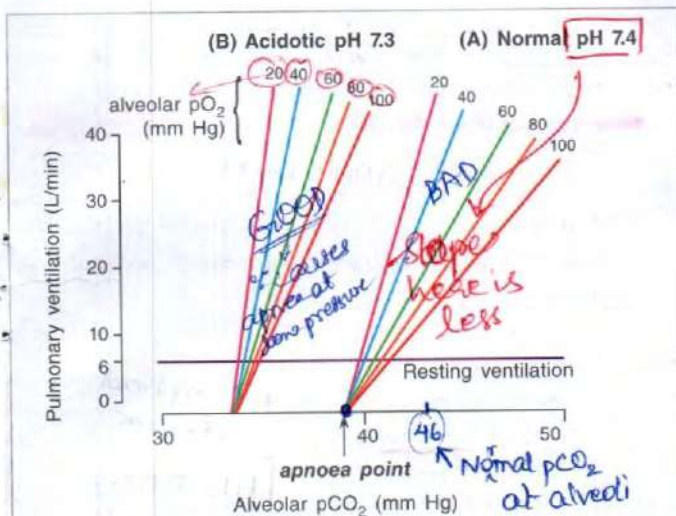 (B) Acidotic pH 7.3
(A) Normal pH 7.4
20 40 60 80 100
20 40 60 80 100
alveolar pO₂
(mm Hg)
Pulmonary ventilation (L/min)
40
30
20
10
6
0
GOOD
∵ causes
apnea at
low pressure
BAD
Slope
here is
less
Resting ventilation
30 40 46 50
apnoea point
Normal pCO₂
at alveoli
Alveolar pCO₂ (mm Hg)